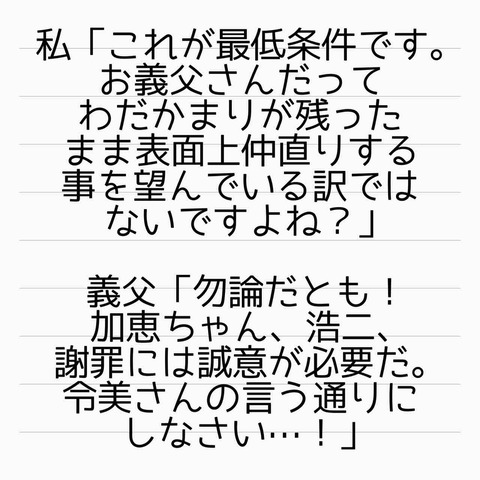 私「これが最低条件です。
お義父さんだって
わだかまりが残った
まま表面上仲直りする
事を望んでいる訳では
ないですよね？」
義父「勿論だとも！
加恵ちゃん、浩二、
謝罪には誠意が必要だ。
令美さんの言う通りに
しなさい…！」